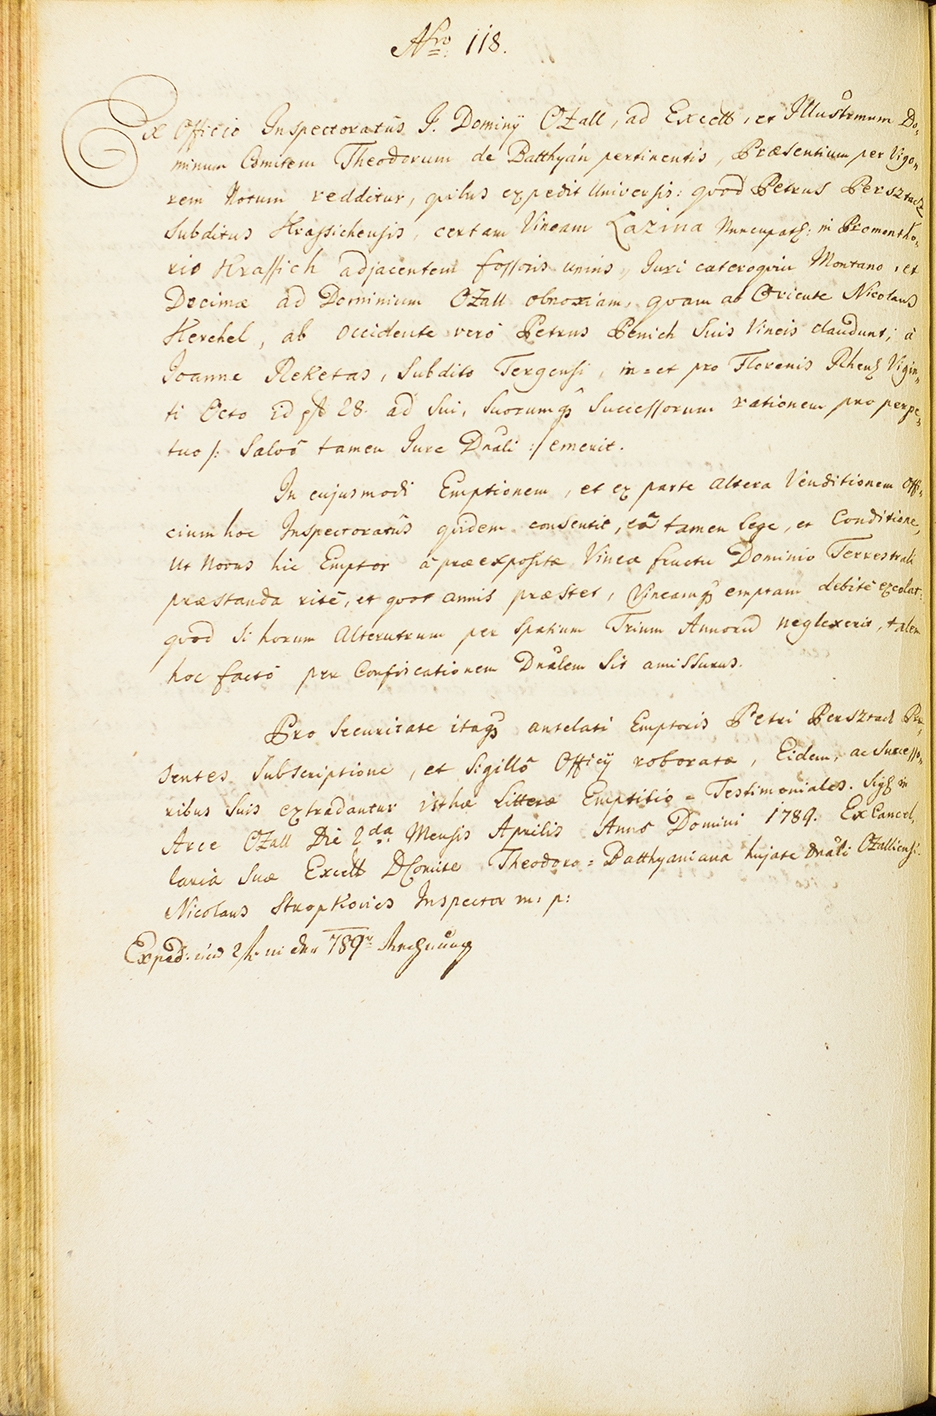 Nro 118.
Ex Officio Inspectoratûs I. Dominÿ Ozall, ad Excell, et Illustrmum Do-
minum Comitem Theodorum de Batthyán pertinentis, Præsentium per Vigo-
rem Notum redditur, quibus expedit Universis: quod Petrus Persztacz
Subditus Hrassichensis, certam Vineam Lazina nuncupat: in Promontho-
rio Hrassich adjacentem fossoris unius, Juri cæteroquin Montano, et
Decimæ ad Dominium Ozall obnoxiam, quam ab Oriente Nicolaus
Herchel, ab Occidente verò Petrus Benich Suis Vineis claudunt; à
Joanne Reketas, Subdito Tergensi, in = et pro Florenis Rhen Vigin-
ti Octo id est 28. ad Sui, Suorumq Successorum rationem pro perpe-
tuo /: Salvô tamen Jure Dnali :/ emerit.
In cujusmodi Emptionem, et ex parte altera Venditionem Offi-
cium hoc Inspectoratûs quidem consentit, eâ tamen lege, et Conditione,
Ut Novus hic Emptor à præexposita Vinea fructu Dominio Terrestrali
præstanda ritè, et quot annis præstet, Vineamq emptam debitè excolat:
quod Si horum Alterutrum per Spatium Trium Annorum neglexerit, talem
hoc factô per Confiscationem Dnalem Sit amissurus.
Pro Securitate itaq antelati Emptoris Petri Persztacz Præ-
sentes Subscriptione, et Sigillô Officÿ roboratæ, Eidem, ac Successo-
ribus Suis extradantur isthæ Litteræ Emptitio = Testimoniales. Sig in
Arce Ozall Die 2da Mensis Aprilis Anno Domini 1789. Ex Cancel-
laria Suæ Excell D Comite Theodoro = Batthyaniana hujate Dnali Ozalliensi.
Nicolaus Stropkovics Inspector m: p:
Exped: 789r Rechnung